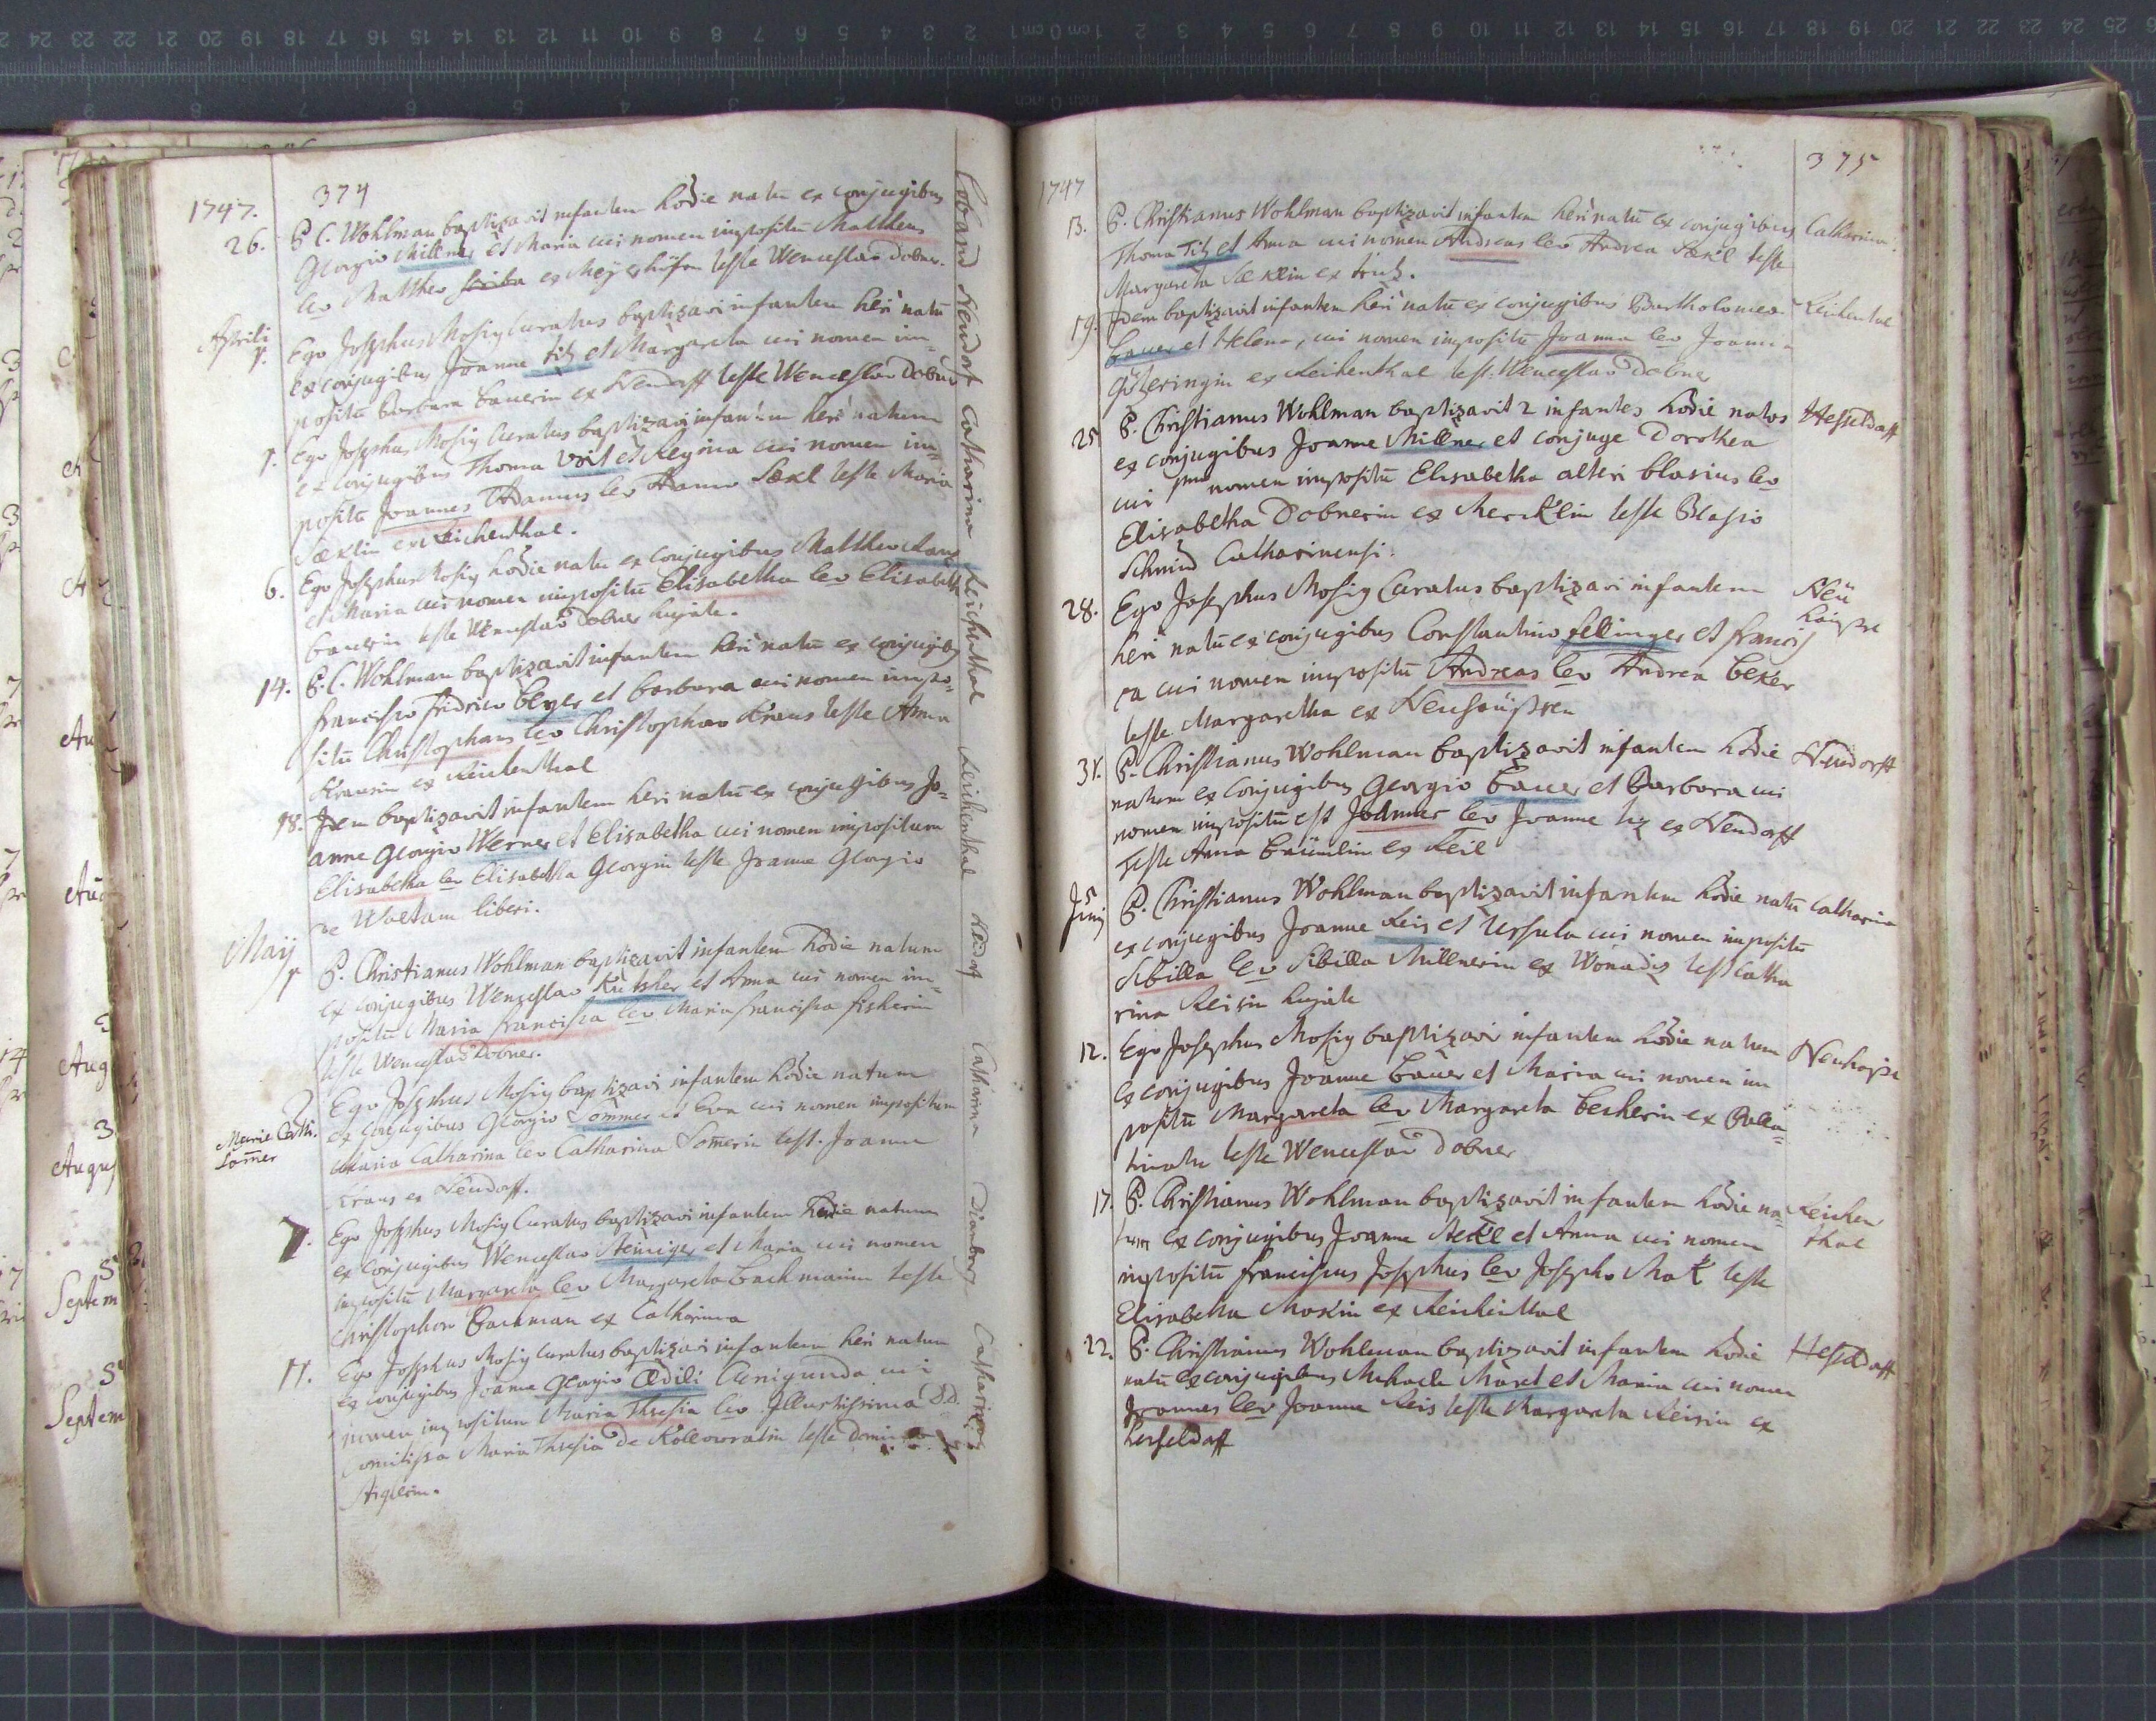 374
1747.
26. P. C. Wohlman baptizavit infantem hodie natū ex conjugibus
Georgio Millner et Maria cui nomen impositū Mattheus
lev Mattheo scriba ex Meyerhöfen teste Wenceslao Dobner.
Aprili
1. Ego Josephus Mosig Curatus baptizavi infantem heri natū
ex conjugibus Joanne Titz et Margareta cui nomen im-
positū Barbara bauerin ex Neudorff teste Wenceslao Dobner
1. Ego Josephus Mosig Curatus baptizavi infantem heri natum
ex conjugibus Thoma Voit et Regina cui nomen im-
positū Joannes Adamus lev Adamo Sækl teste Maria
Sæklin ex Reichenthal.
6. Ego Josephus Mosig hodie natū ex conjugibus Mattheo
et Maria cui nomen impositū Elisabetha lev Elisabetha
bauerin teste Wenceslao Dobner hujate.
14. P. C. Wohlman baptizavit infantem heri natū ex conjugibus
francisco fridrico beyer et barbara cui nomen impo-
situ Christophorus lev Christophoro Kraus teste Anna
Krausin ex Reichenthal
18. Idem baptizavit infantem heri natū ex conjugibus Jo-
anne Georgio Werner et Elisabetha cui nomen impositum
Elisabetha lev Elisabetha Georgin teste Joanne Georgio
de liberi.
Maij
1. P. Christianus Wohlman baptizavit infantem hodie natum
ex conjugibus Wenzeslao Kutsher et Anna cui nomen im-
positū Maria francisca lev Maria francisca fisherin
teste Wenceslao Dobner.
Marie Cath.
Somer
2. Ego Josephus Mosig baptizavi infantem hodie natum
ex conjugibus Georgio Sommer et Eva cui nomen impositum
Maria Catharina lev Catharina Somerin test. Joanne
Kraus ex Neudorff.
7. Ego Josephus Mosig Curatus baptizavi infantem hodie natum
ex conjugibus Wenceslao Steiniger et Maria cui nomen
impositū Margareta lev Margareta bachmanin teste
Christophoro Bachman ex Catharina
11. Ego Josephus Mosig Curatus baptizavi infantem heri natum
ex conjugibus Joanne Georgio Ædili Cunigunda cui
nomen impositum Maria Thresia lev Illustrissima DD.
Comitissa Maria Thresia de Kollowratin teste
Stiglerin.
Neudorf Catharina Reichenthal Reichenthal Neudorf Catharina Catharina
375
1747
13. P. Christianus Wohlman baptizavit infantem heri natū ex conjugibus Catharina
Thoma Titz et Anna cui nomen Andreas lev Andrea Sækl teste
Margareta Sæklin ex
19. Idem baptizavit infantem heri natū ex conjugibus Bartholomeo Reichenthal
bauer et Helena, cui nomen impositū Joanna lev Joanna
ex Reichenthal test. Wenceslao Dobner
25 P. Christianus Wohlman baptizavit 2 infantes hodie natos Hesseldorff
ex conjugibus Joanne Millner et conjuge Dorothea
cui 1mo nomen impositū Elisabetha alteri blasius lev
Elisabetha Dobnerin ex Mercklin teste Blasio
Schmid Catharinensi.
28. Ego Josephus Mosig Curatus baptizavi infantem Neü
häusse
heri natū ex conjugibus Constantino fellinger et francis
ca cui nomen impositū Andreas lev Andrea beker
teste Margaretha ex Neuhäussern
31. P. Christianus Wohlman baptizavit infantem hodie Neudorff
natum ex conjugibus Georgio bauer et Barbara cui
nomen impositū est Joannes lev Joanne ex Neudorff
teste Anna bäumlin ex Keil
5
Junij P. Christianus Wohlman baptizavit infantem hodie natū Catharina
ex conjugibus Joanne Reis et Ursula cui nomen impositū
Sibilla lev Sibilla Millnerin ex test Catha
rina Reisin hujate
12. Ego Josephus Mosig baptizavi infantem hodie natum Neuhäusse
ex conjugibus Joanne bauer et Maria cui nomen im
positū Margareta lev Margareta becherin ex Pala-
tinatu teste Wenceslao Dobner
17. P. Christianus Wohlman baptizavit infantem hodie na- Reichen
thal
tum ex conjugibus Joanne Stekl et Anna cui nomen
impositū franciscus Josephus lev Josepho Mokl teste
Elisabetha Moklin ex Reichenthal
22. P. Christianus Wohlman baptizavit infantem hodie Hesseldorff
natū ex conjugibus Michaele Maxel et Maria cui nomen
Joannes lev Joanne Reis teste Margareta Reisin ex
hesseldorff